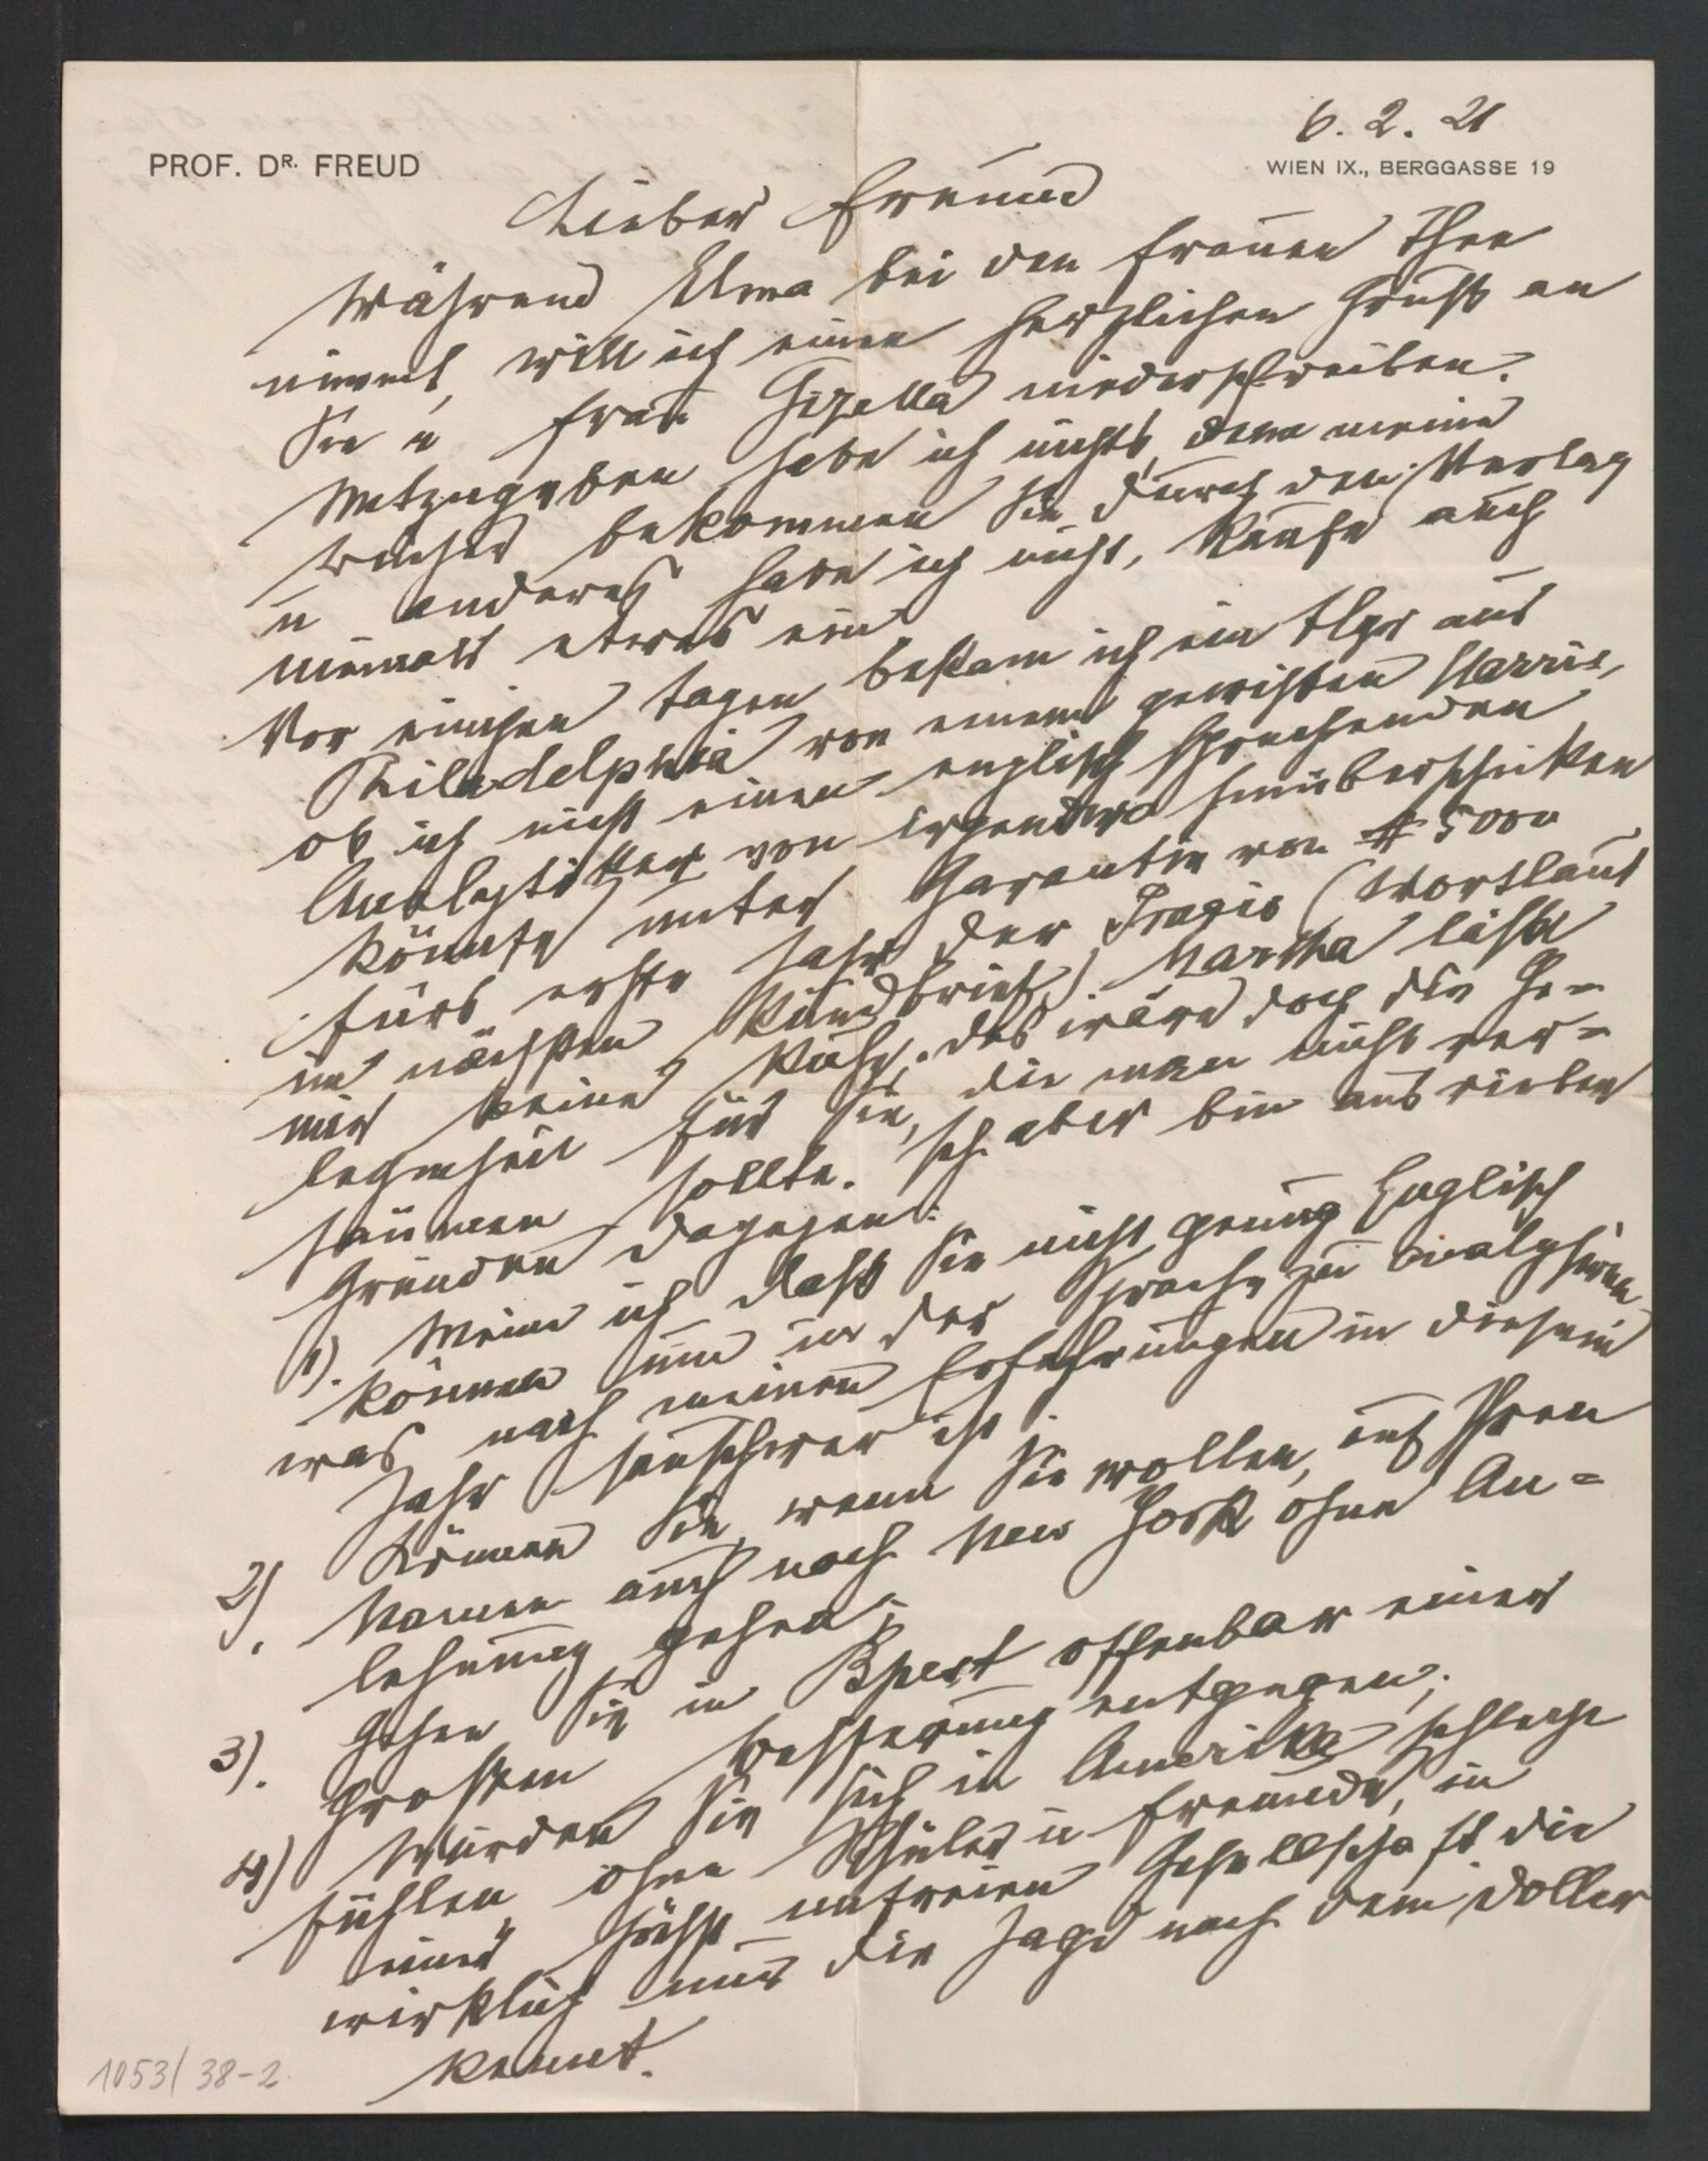 6. 2. 21
PROF. DR. FREUD
WIEN IX., BERGGASSE 19
Lieber Freund
Während Elma bei den Frauen Thee
nimmt, will ich einen herzlichen Gruß an
Sie u Frau Gizella niederschreiben.
Mitzugeben habe ich nichts, denn meine
Bücher bekommen Sie durch den Verlag
u anderes habe ich nicht, kaufe auch
niemals etwas ein
Vor einigen Tagen bekam ich ein Tlgr aus
Philadelphia von einem gewissen Harris,
ob ich nicht einen englisch sprechenden
Analytiker von irgendwo hinüberschicken
könnte unter Garantie von $ 5000
fürs erste Jahr der Praxis (Wortlaut
im nächsten Rundbrief). Martha läßt
mir keine Ruhe, das wäre doch die Ge-
legenheit für Sie, die man nicht ver-
säumen sollte. Ich aber bin aus vielen
Gründen dagegen:
1). Meine ich, daß Sie nicht genug Englisch
können um in der Sprache zu analysieren,
was nach meinen Erfahrungen in diesem
Jahr sauschwer ist.
2). Können Sie, wenn Sie wollen, auf Ihren
Namen auch nach New York ohne An-
lehnung gehen;
3). Gehen Sie in Bpest offenbar einer
großen Besserung entgegen;
4) Würden Sie sich in Amerika schlecht
fühlen ohne Schüler u Freunde, in
einer höchst unfreien Gesellschaft die
wirklich nur die Jagd nach dem Dollar
kennt.
1053/38-2